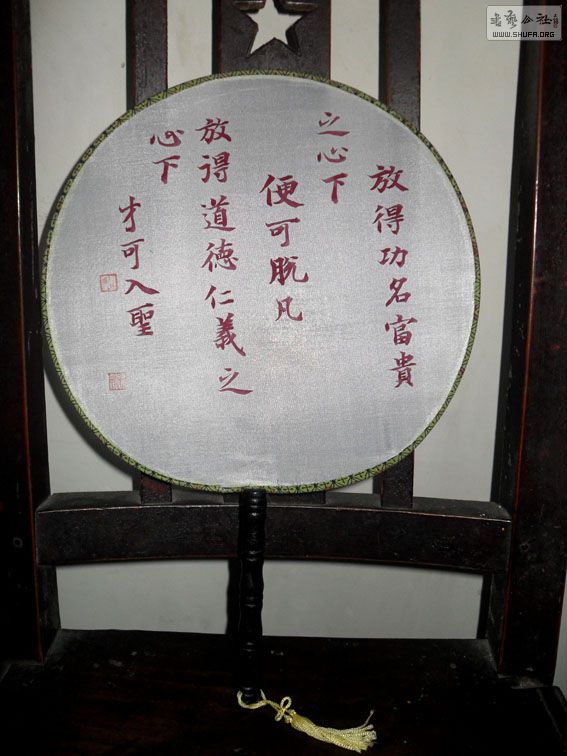 放得功名富貴
之心下
便可脱凡
放得道德仁義之
心下
才可入聖
WWW.SHUFA.ORG